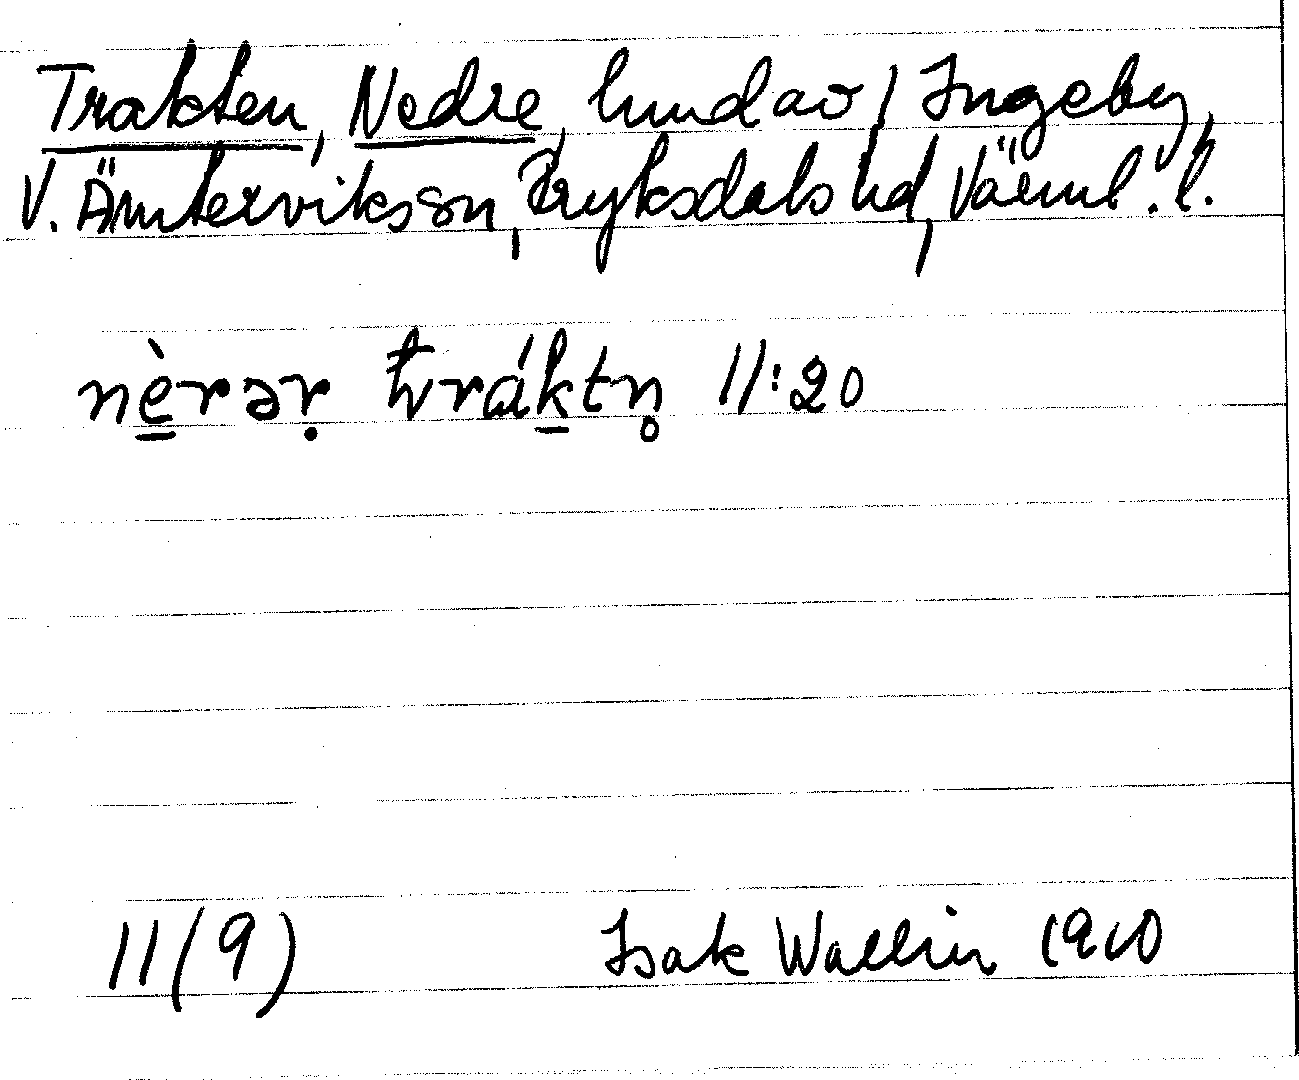 Trakten, Nedre, hmd av / Ingeby,
V. Ämterviks sn, Fryksdals hd, Värml. l.
nè̠rər̩ tráḵtn̥ 11:20
11(9) Isak Wallin 1910